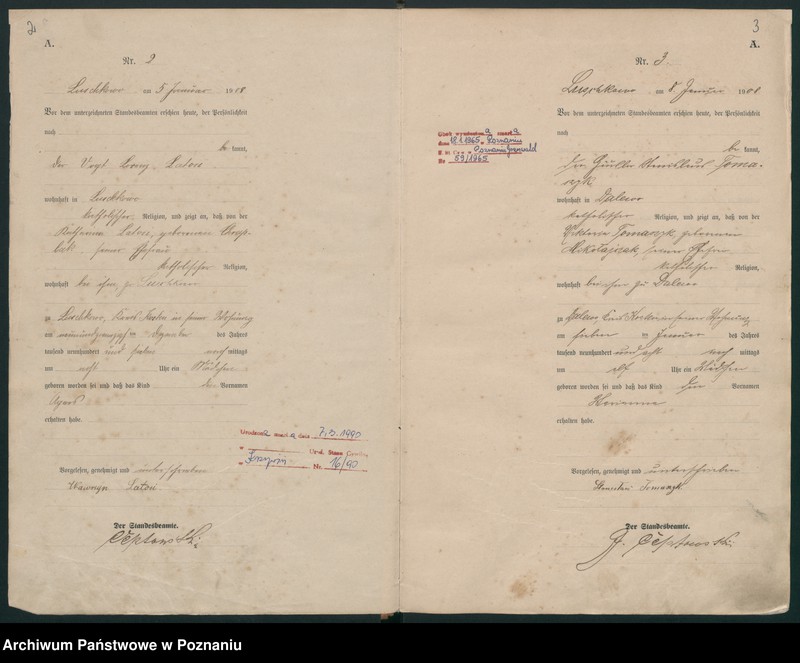 2
A.
Nr. 2
Luschkowo am 5 Januar 1908
Vor dem unterzeichneten Standesbeamten erschien heute, der Persönlichkeit
nach
be kannt,
der Vogt Laton
wohnhaft in Luschkowo
katholischer Religion, und zeigt an, daß von der
Katharina Laton, geborenen
seiner Ehefrau
katholischer Religion,
wohnhaft bei ihm zu Luschkowo
zu Luschkowo, Kreis Kosten in seiner Wohnung
am neunundzwanzigsten Dezember des Jahres
tausend neunhundert und sieben nach mittags
um acht Uhr ein Mädchen
geboren worden sei und daß das Kind den Vornamen
Agnes
erhalten habe.
7.3.1990
Urząd Stanu
Nr. 16/90
Vorgelesen, genehmigt und unterschrieben
Wawrzyn Laton
Der Standesbeamte.
3
A.
Nr. 3.
Luschkowo am 8 Januar 1908
Vor dem unterzeichneten Standesbeamten erschien heute, der Persönlichkeit
nach
be kannt,
der Häusler Stanislaus Toma-
czyk
wohnhaft in Dalewo
katholischer Religion, und zeigt an, daß von der
Viktoria Tomaczyk, geborenen
Mikolajczak, seiner Ehefrau
katholischer Religion,
wohnhaft bei ihm zu Dalewo
zu Dalewo Kreis Kosten in seiner Wohnung
am sieben ten Januar des Jahres
tausend neunhundert und acht nach mittags
um elf Uhr ein Mädchen
geboren worden sei und daß das Kind den Vornamen
erhalten habe.
18.1.1965 Poznaniu
Nr 59/1965
Vorgelesen, genehmigt und unterschrieben
Tomaczyk
Der Standesbeamte.
Archiwum Państwowe w Poznaniu